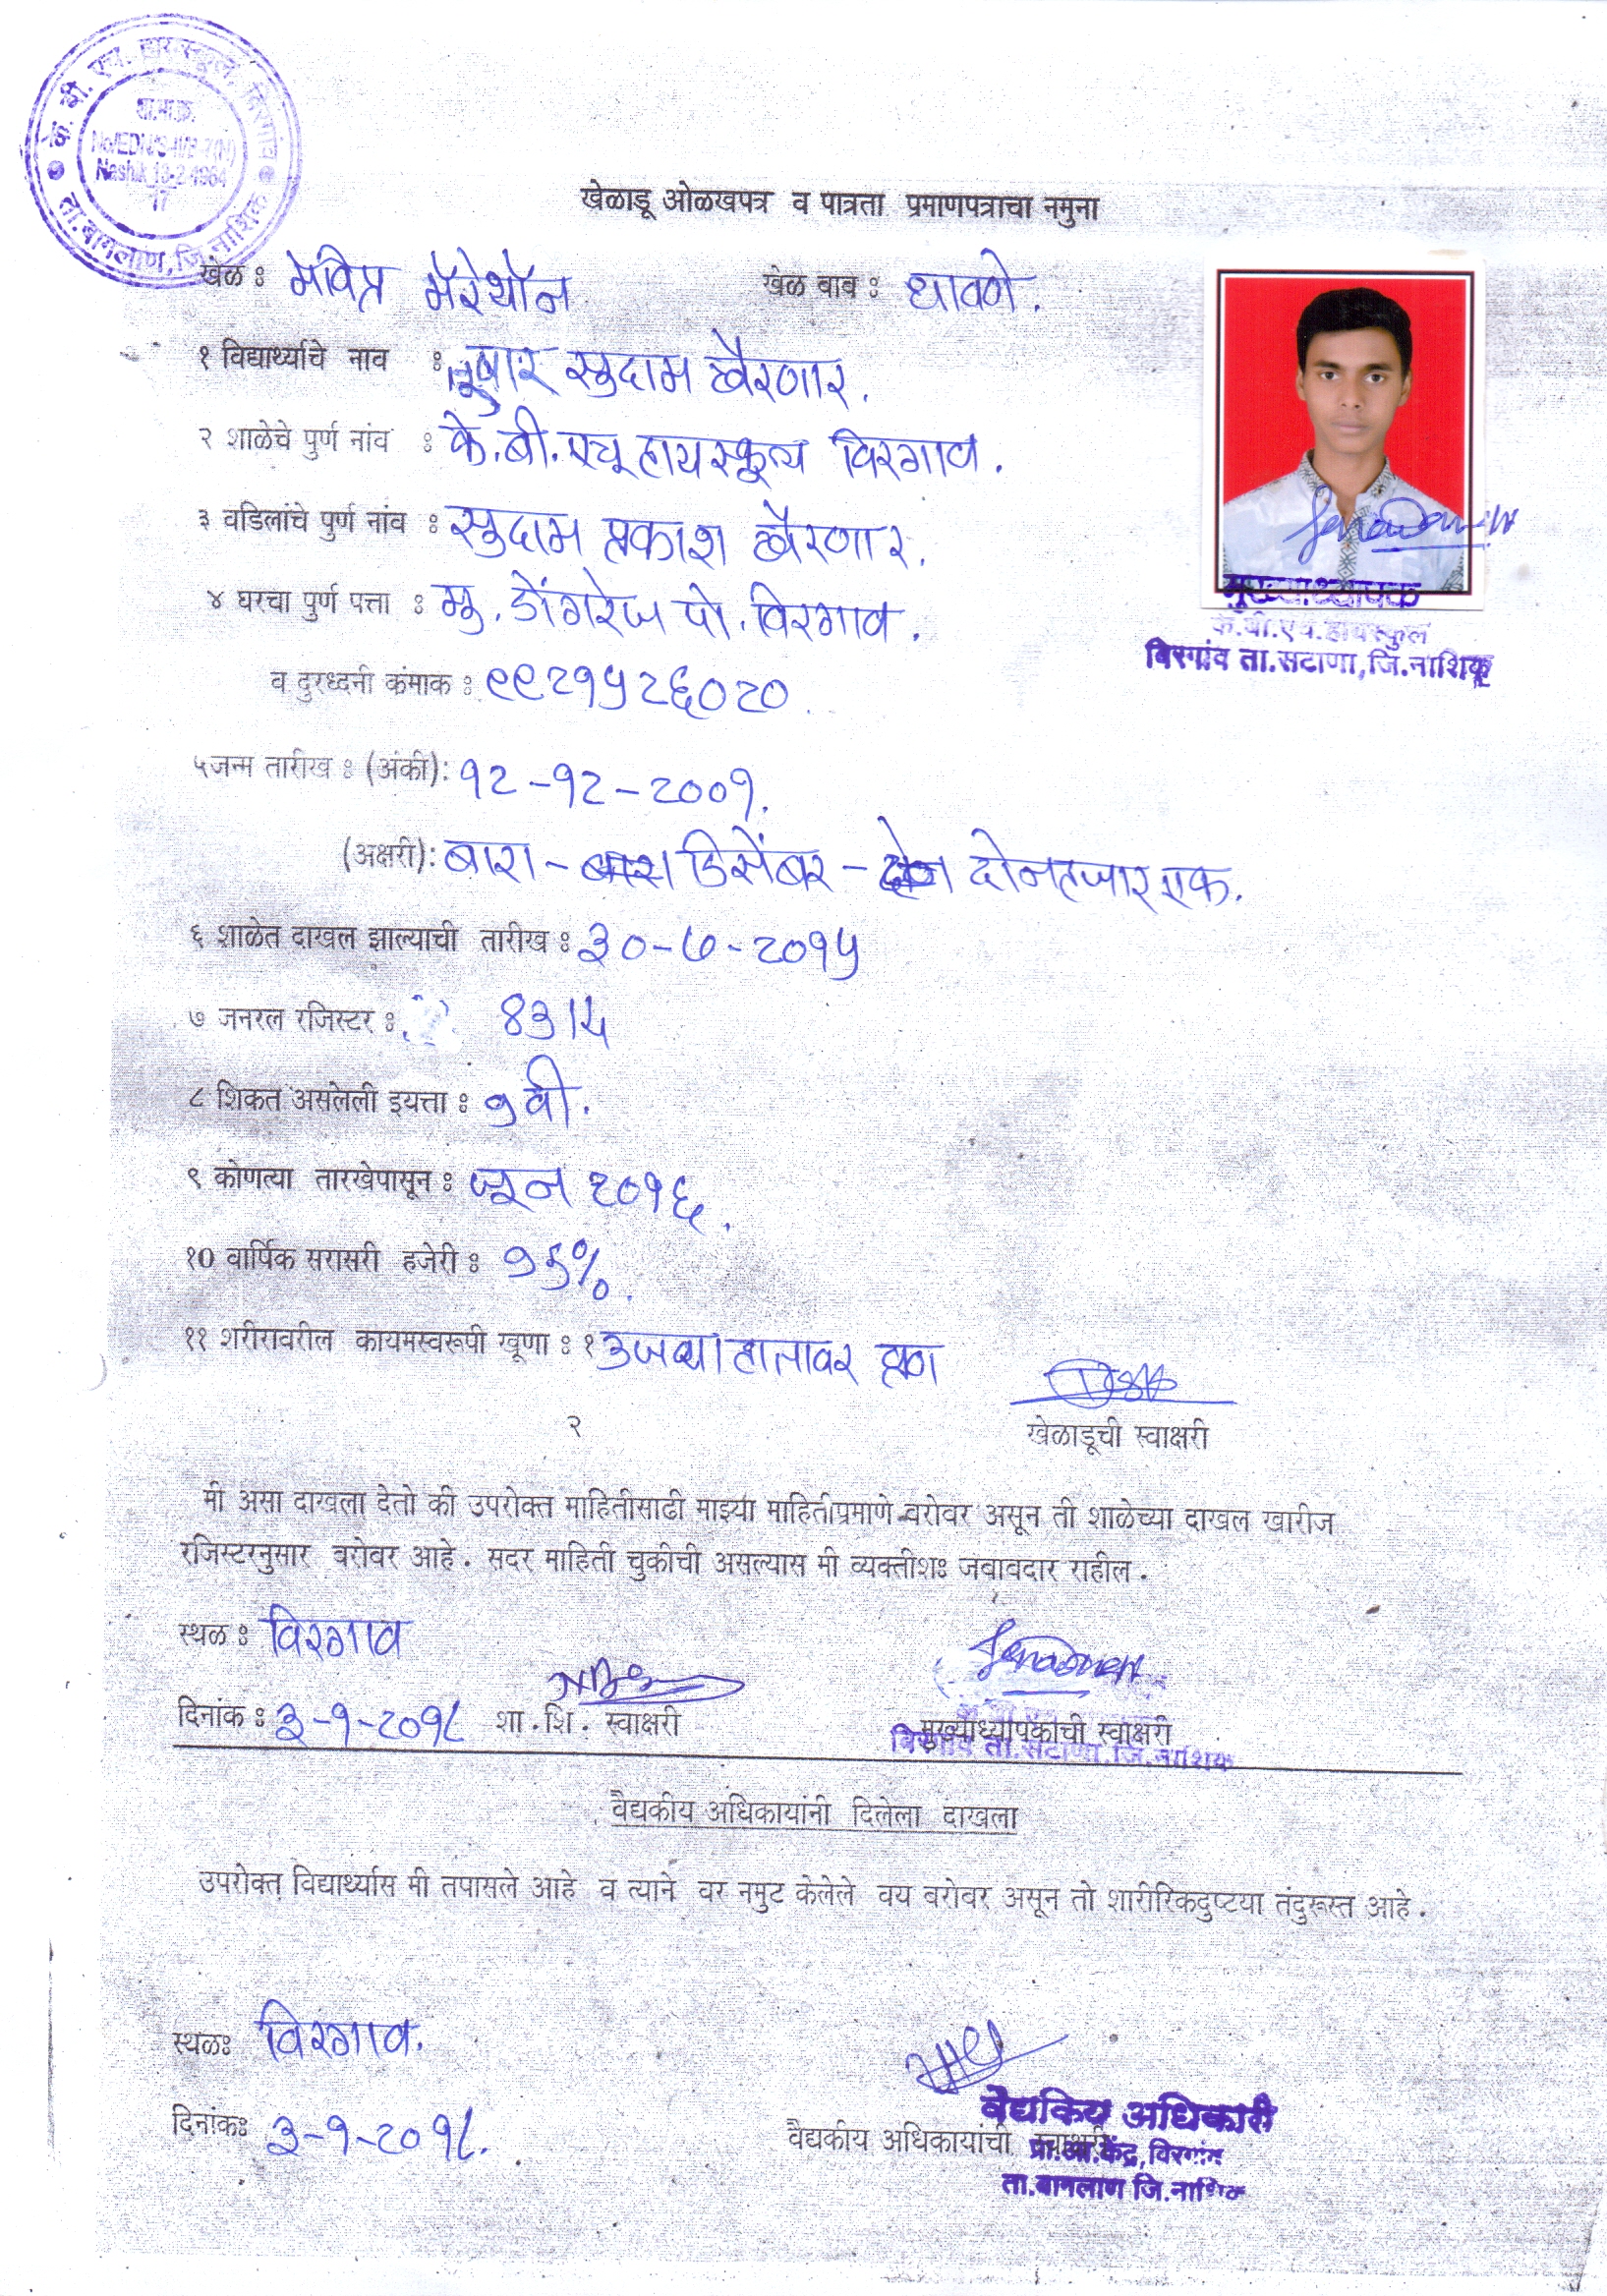 के. बी. एच. हायस्कूल, विरगांव
ता.बागलाण,जि.नाशिक
Nashik
खेळाडू ओळखपत्र व पात्रता प्रमाणपत्राचा नमुना
खेळ : मविप्र मॅरेथॉन खेळ बाब : धावणे.
१ विद्यार्थ्याचे नाव : तुषार सुदाम ब्बैरणार.
२ शाळेचे पुर्ण नांव : के.बी.एच् हायस्कूल विरगाव.
३ वडिलांचे पुर्ण नांव : सुदाम प्रकाश ब्बैरणार.
४ घरचा पुर्ण पत्ता : मु. डोंगरेज पो. विरगाव.
मुख्याध्यापक
के.बी.एच.हायस्कुल
विरगांव ता.सटाणा,जि.नाशिक
व दुरध्दनी कंमाक : ९९२१५२६०२०
५जन्म तारीख : (अंकी): १२-१२-२००१.
(अक्षरी): बारा - डिसेंबर - दोनहजार एक.
६ शाळेत दाखल झाल्याची तारीख : ३०-७-२०१५
७ जनरल रजिस्टर :
८ शिकत असलेली इयत्ता : ९ वी.
९ कोणत्या तारखेपासून : जून २०१६.
१0 वार्षिक सरासरी हजेरी :
११ शरीरावरील कायमस्वरूपी खूणा : १ उजव्या हातावर व्रण
२
खेळाडूची स्वाक्षरी
मी असा दाखला देतो की उपरोक्त माहितीसाढी माझ्या माहितीप्रमाणे बरोबर असून ती शाळेच्या दाखल खारीज
रजिस्टरनुसार बरोबर आहे. सदर माहिती चुकीची असल्यास मी व्यक्तीशः जवाबदार राहील.
स्थळ : विरगाव
दिनांक : ३-१-२०१८ शा.शि. स्वाक्षरी मुख्याध्यापकाची स्वाक्षरी
विरगांव ता.सटाणा,जि.नाशिक
वैद्यकीय अधिकार्यांनी दिलेला दाखला
उपरोक्त विद्यार्थ्यास मी तपासले आहे व त्याने वर नमुट केलेले वय बरोबर असून तो शारीरिकदुप्टया तंदुरूस्त आहे.
स्थळः विरगाव.
दिनांकः ३-१-२०१८.
वैद्यकीय अधिकार्यांची स्वाक्षरी
वैद्यकिय अधिकारी
प्रा.आ.केंद्र,विरगांव
ता.बागलाण जि.नाशिक